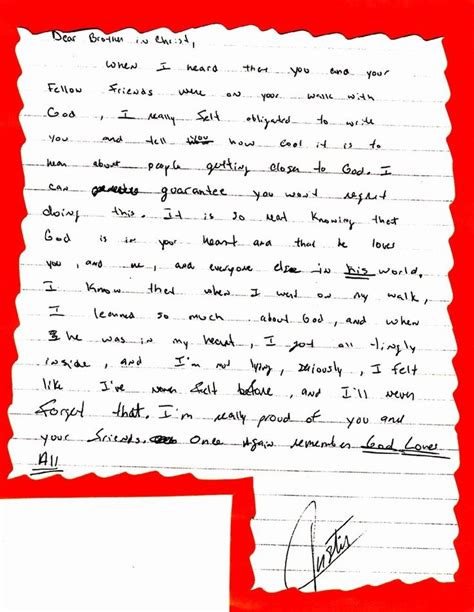 Dear Brother in Christ,
When I heard that you and your
Fellow friends were on your walk with
God, I really felt obligated to write
you and tell you how cool it is to
hear about people getting closer to God. I
can guarantee you won't regret
doing this. It is so neat knowing that
God is in your heart and that he loves
you, and me, and everyone else in his world,
I know that when I went on my walk,
I learned so much about God, and when
he was in my heart, I got all tingly
inside, and I'm not lying, seriously, I felt
like I've never felt before, and I'll never
forget that. I'm really proud of you and
your friends. Once again remember God Loves
All
Justin